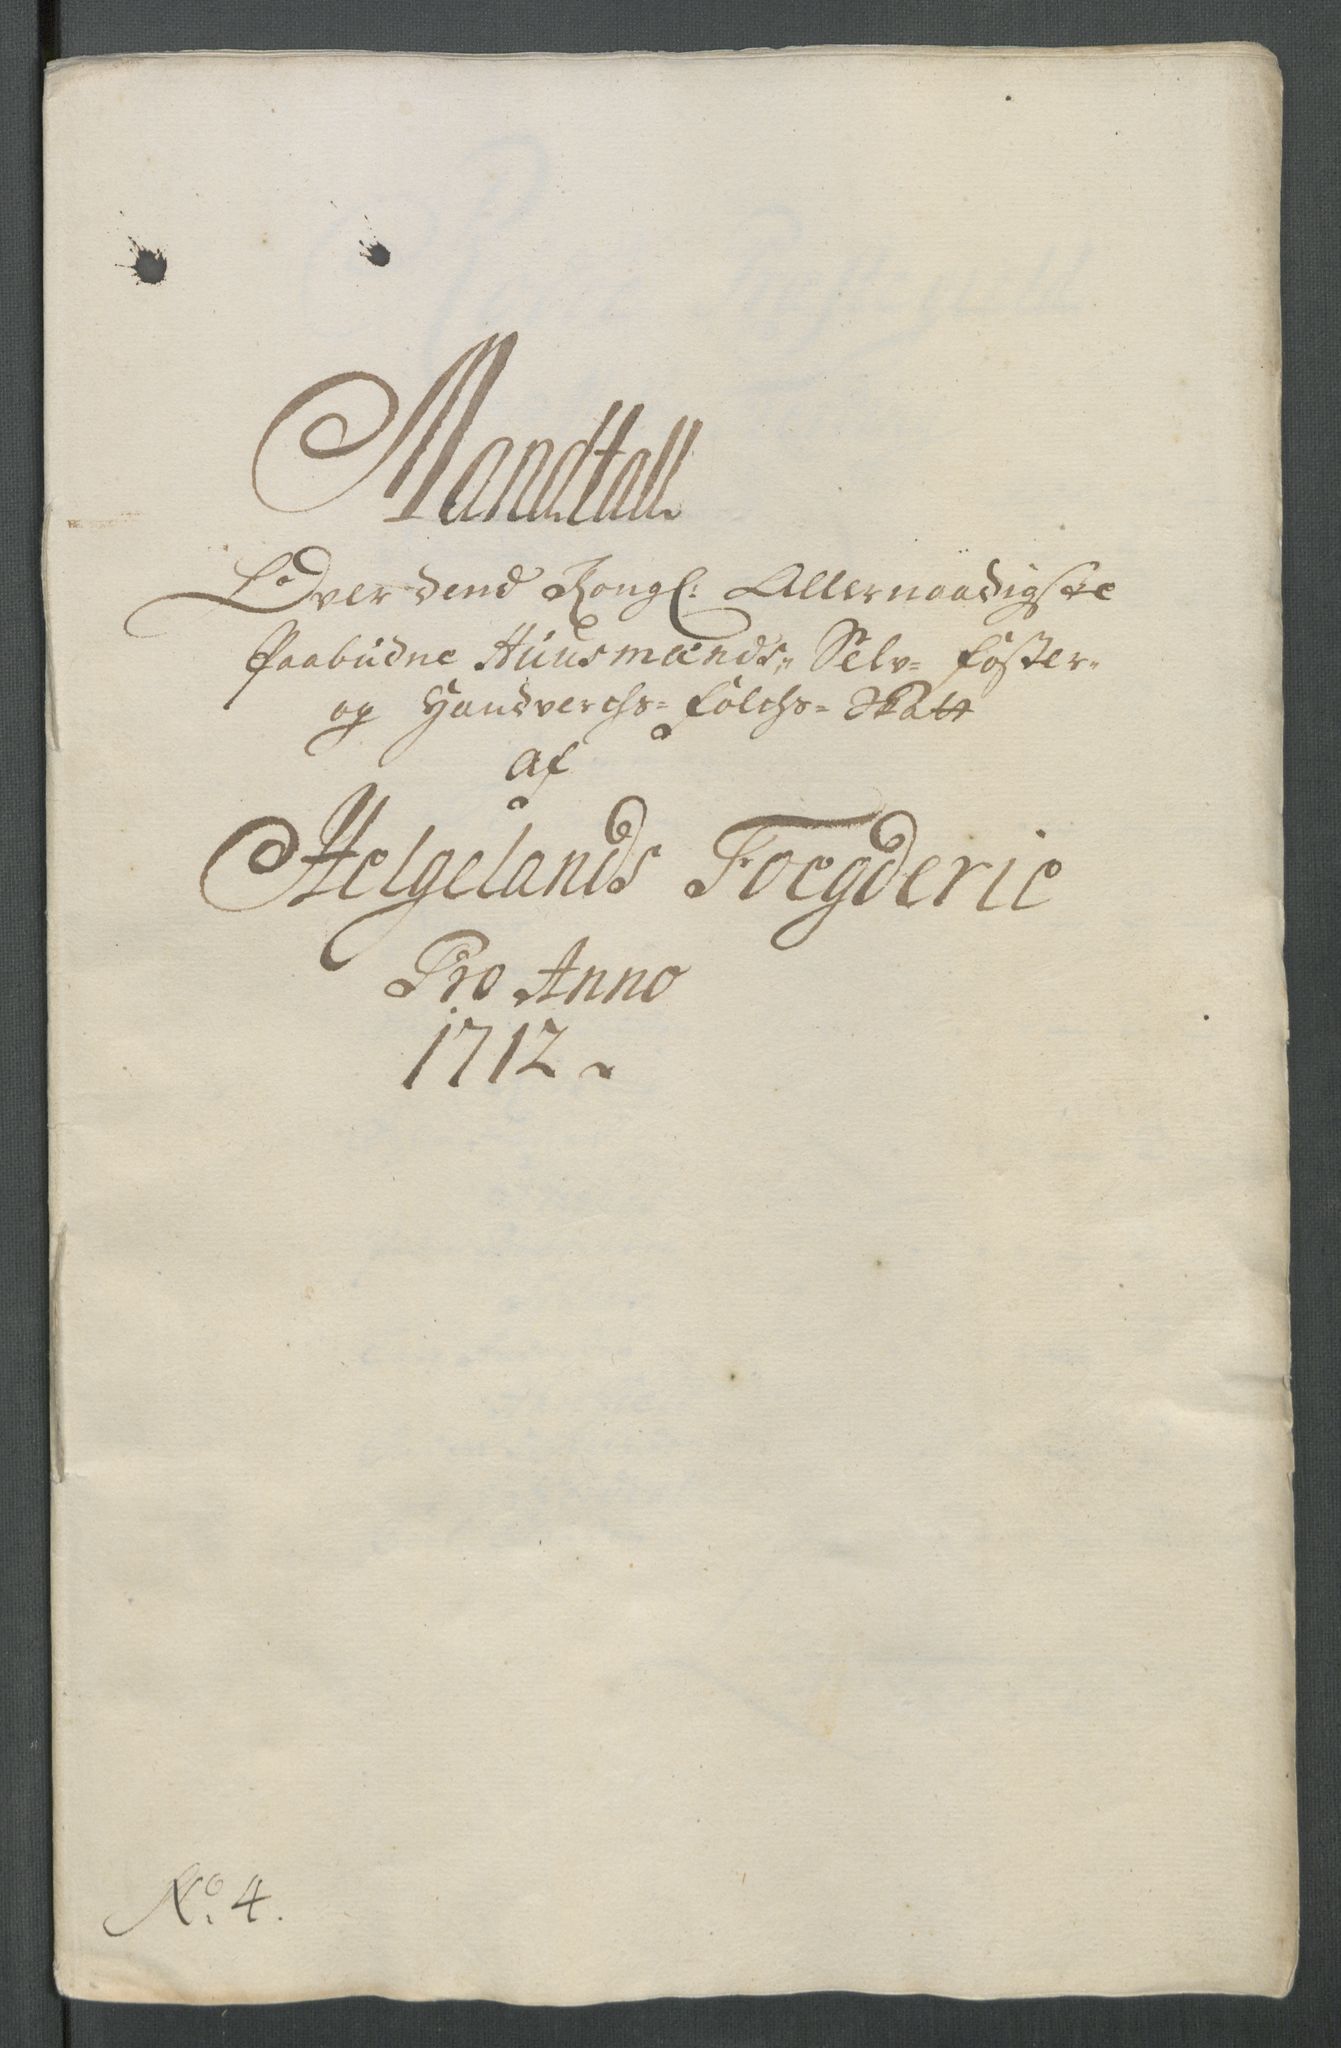 Mandtall
Over dend Kongl: Allernaadigste
Paabudne Huusmænds„ Selv= foster=
og Handverchs= folchs= Skatt
af
Helgelands Foegderie
Pro Anno
1712
No. 4.